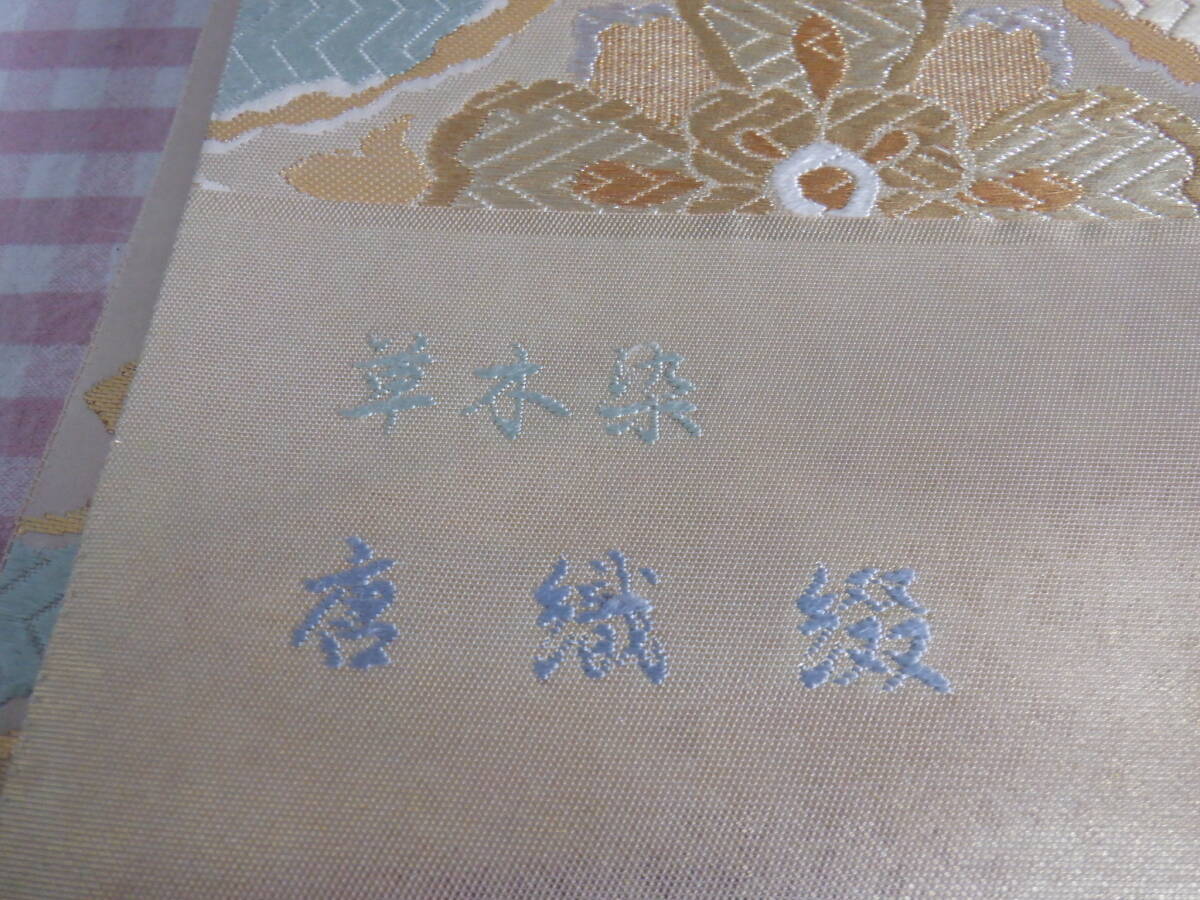 草木染
唐織綴